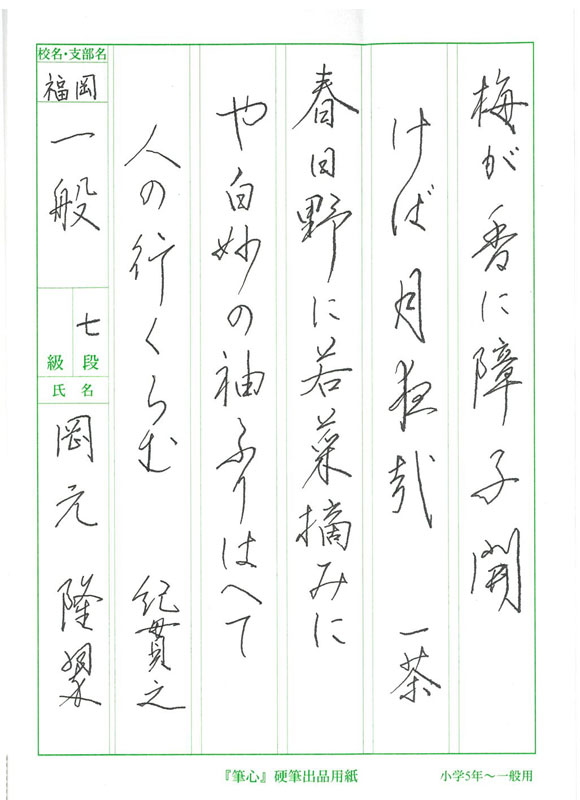 梅が香に障子開
けば月夜哉　一茶
春日野に若菜摘みに
や白妙の袖ふりはへて
人の行くらむ　紀貫之
校名・支部名
福岡
一般
七段
級
氏名
岡元 隆翠
『筆心』硬筆出品用紙
小学5年～一般用